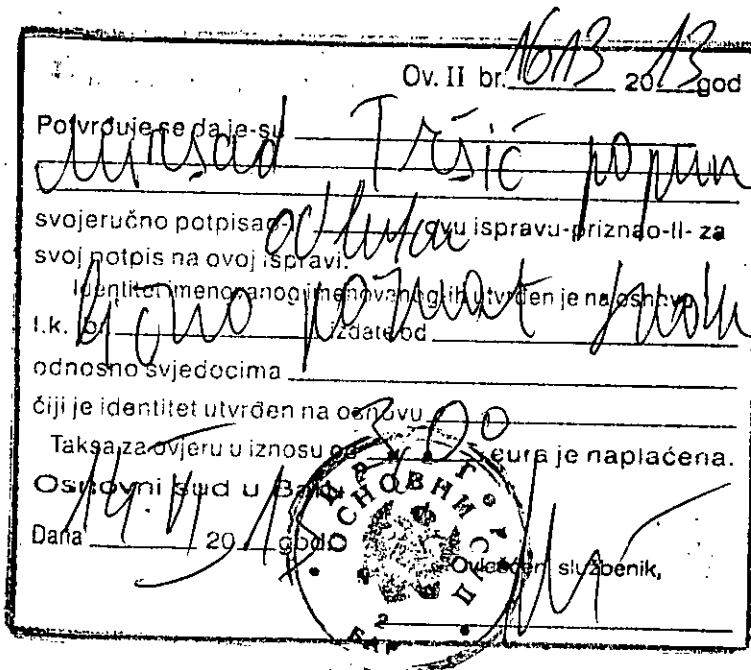 Ov. II br. 1613 2013 god
Potvrđuje se da je-su
Mirsad Tršić
svojeručno potpisao-li ovu ispravu-priznao-li- za
svoj potpis na ovoj ispravi.
Identitet imenovanog imenovanog-ih utvrđen je na osnovu
l.k. br. izdate od
lično poznat sudu
odnosno svjedocima
čiji je identitet utvrđen na osnovu
Taksa za ovjeru u iznosu od 3,00 eura je naplaćena.
Osnovni sud u Baru
Dana 14. 20 god.
Ovlašćeni službenik,
ОСНОВНИ СУД
2
БАР